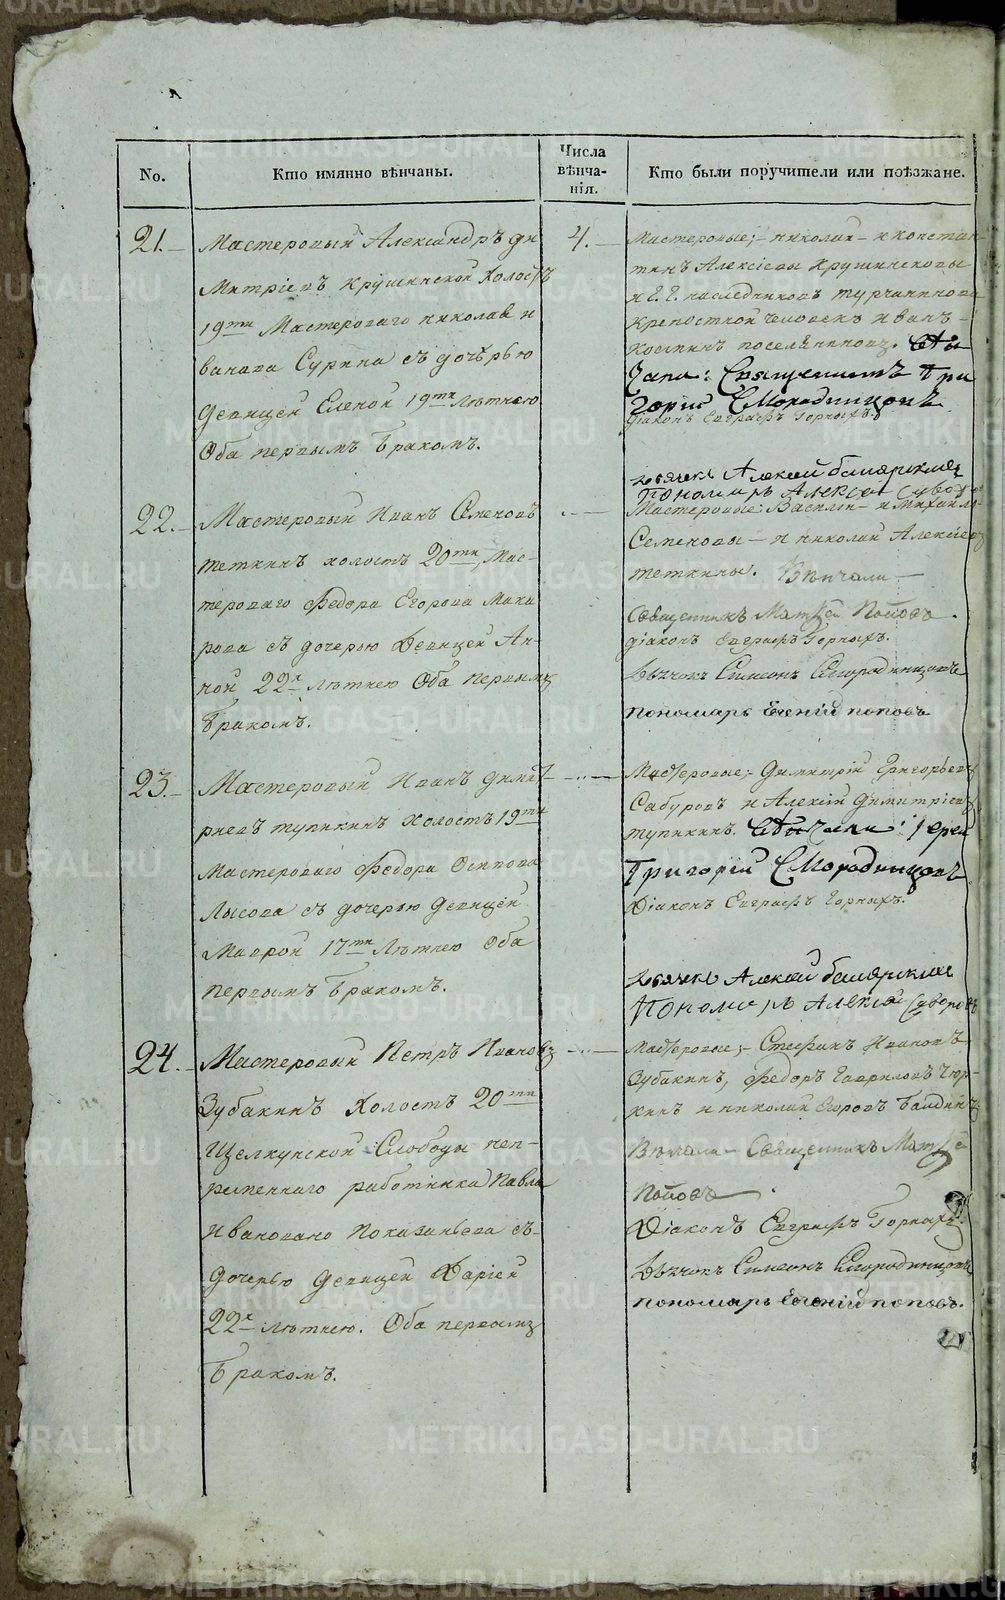 No.
Кто имянно вѣнчаны.
Числа
вѣнча-
нія.
Кто были поручители или поѣзжане.
21.
Мастеровый Александръ Ди
митріевъ Крушинской Холостъ
19ти Мастероваго Николая И
ванова Сурина съ дочѣрью
Девицей Еленой 19ти Лѣтнею
Оба первымъ бракомъ.
4.
Мастеровые; Николай и Констан
тинъ Алексіевы Крушинсковы
и Г. Г. наследниковъ Турчанинова
крепостной человекъ Иванъ
Костинъ поселянинов.
Григорій Смородинцовъ
діаконъ Евграфъ Горныхъ.
дьячекъ Алексей
Пономарь Алексій Суворовъ
22.
Мастеровый Иванъ Семеновъ
Теткинъ холостъ 20ти, Мас-
тероваго Федора Егорова Мака
рова съ дочерью Девицей Ан-
ной 22х Лѣтнею Оба первымъ
бракомъ.
Мастеровые: Василій и Михайло
Семеновы и Николай Алексіевъ
Теткины. Вѣнчали
Священникъ Матѳей Поповъ.
діаконъ Евграфъ Горныхъ.
Дьячокъ Симеонъ Смородинцовъ
пономарь Евгеній поповъ
23.
Мастеровый Иванъ Димит
риевъ Тупикинъ Холостъ 19ти
Мастероваго Федора Осипова
Лысова съ дочерью Девицей
Маврой 17ти Лѣтнею Оба
первымъ бракомъ.
Мастеровые; Димитрій Григорьевъ
Сабуровъ и Алексій Димитріевъ
Тупикинъ. Вѣнчали: Іерей
Григорій Смородинцовъ
Діаконъ Евграфъ Горныхъ.
дьячекъ Алексей
Пономарь Алексій Суворовъ
24.
Мастеровый Петръ Ивановъ
Зубакинъ Холостъ 20ти
Щелкунской Слободы неп-
ременнаго работника Павла
Ивановано Показаньева съ
дочерью Девицей Даріей
22х Лѣтнею. Оба первымъ
бракомъ.
Мастеровые; Стефанъ Ивановъ
Зубакинъ, Федоръ Гавриловъ Чюр
кинъ и Николай Егоровъ
Вѣнчали Священникъ Матѳей
Поповъ
Діаконъ Евграфъ Горныхъ.
Дьячокъ Симеонъ Смородинцовъ
пономарь Евгеній поповъ.
METRIKI.GASO-URAL.RU